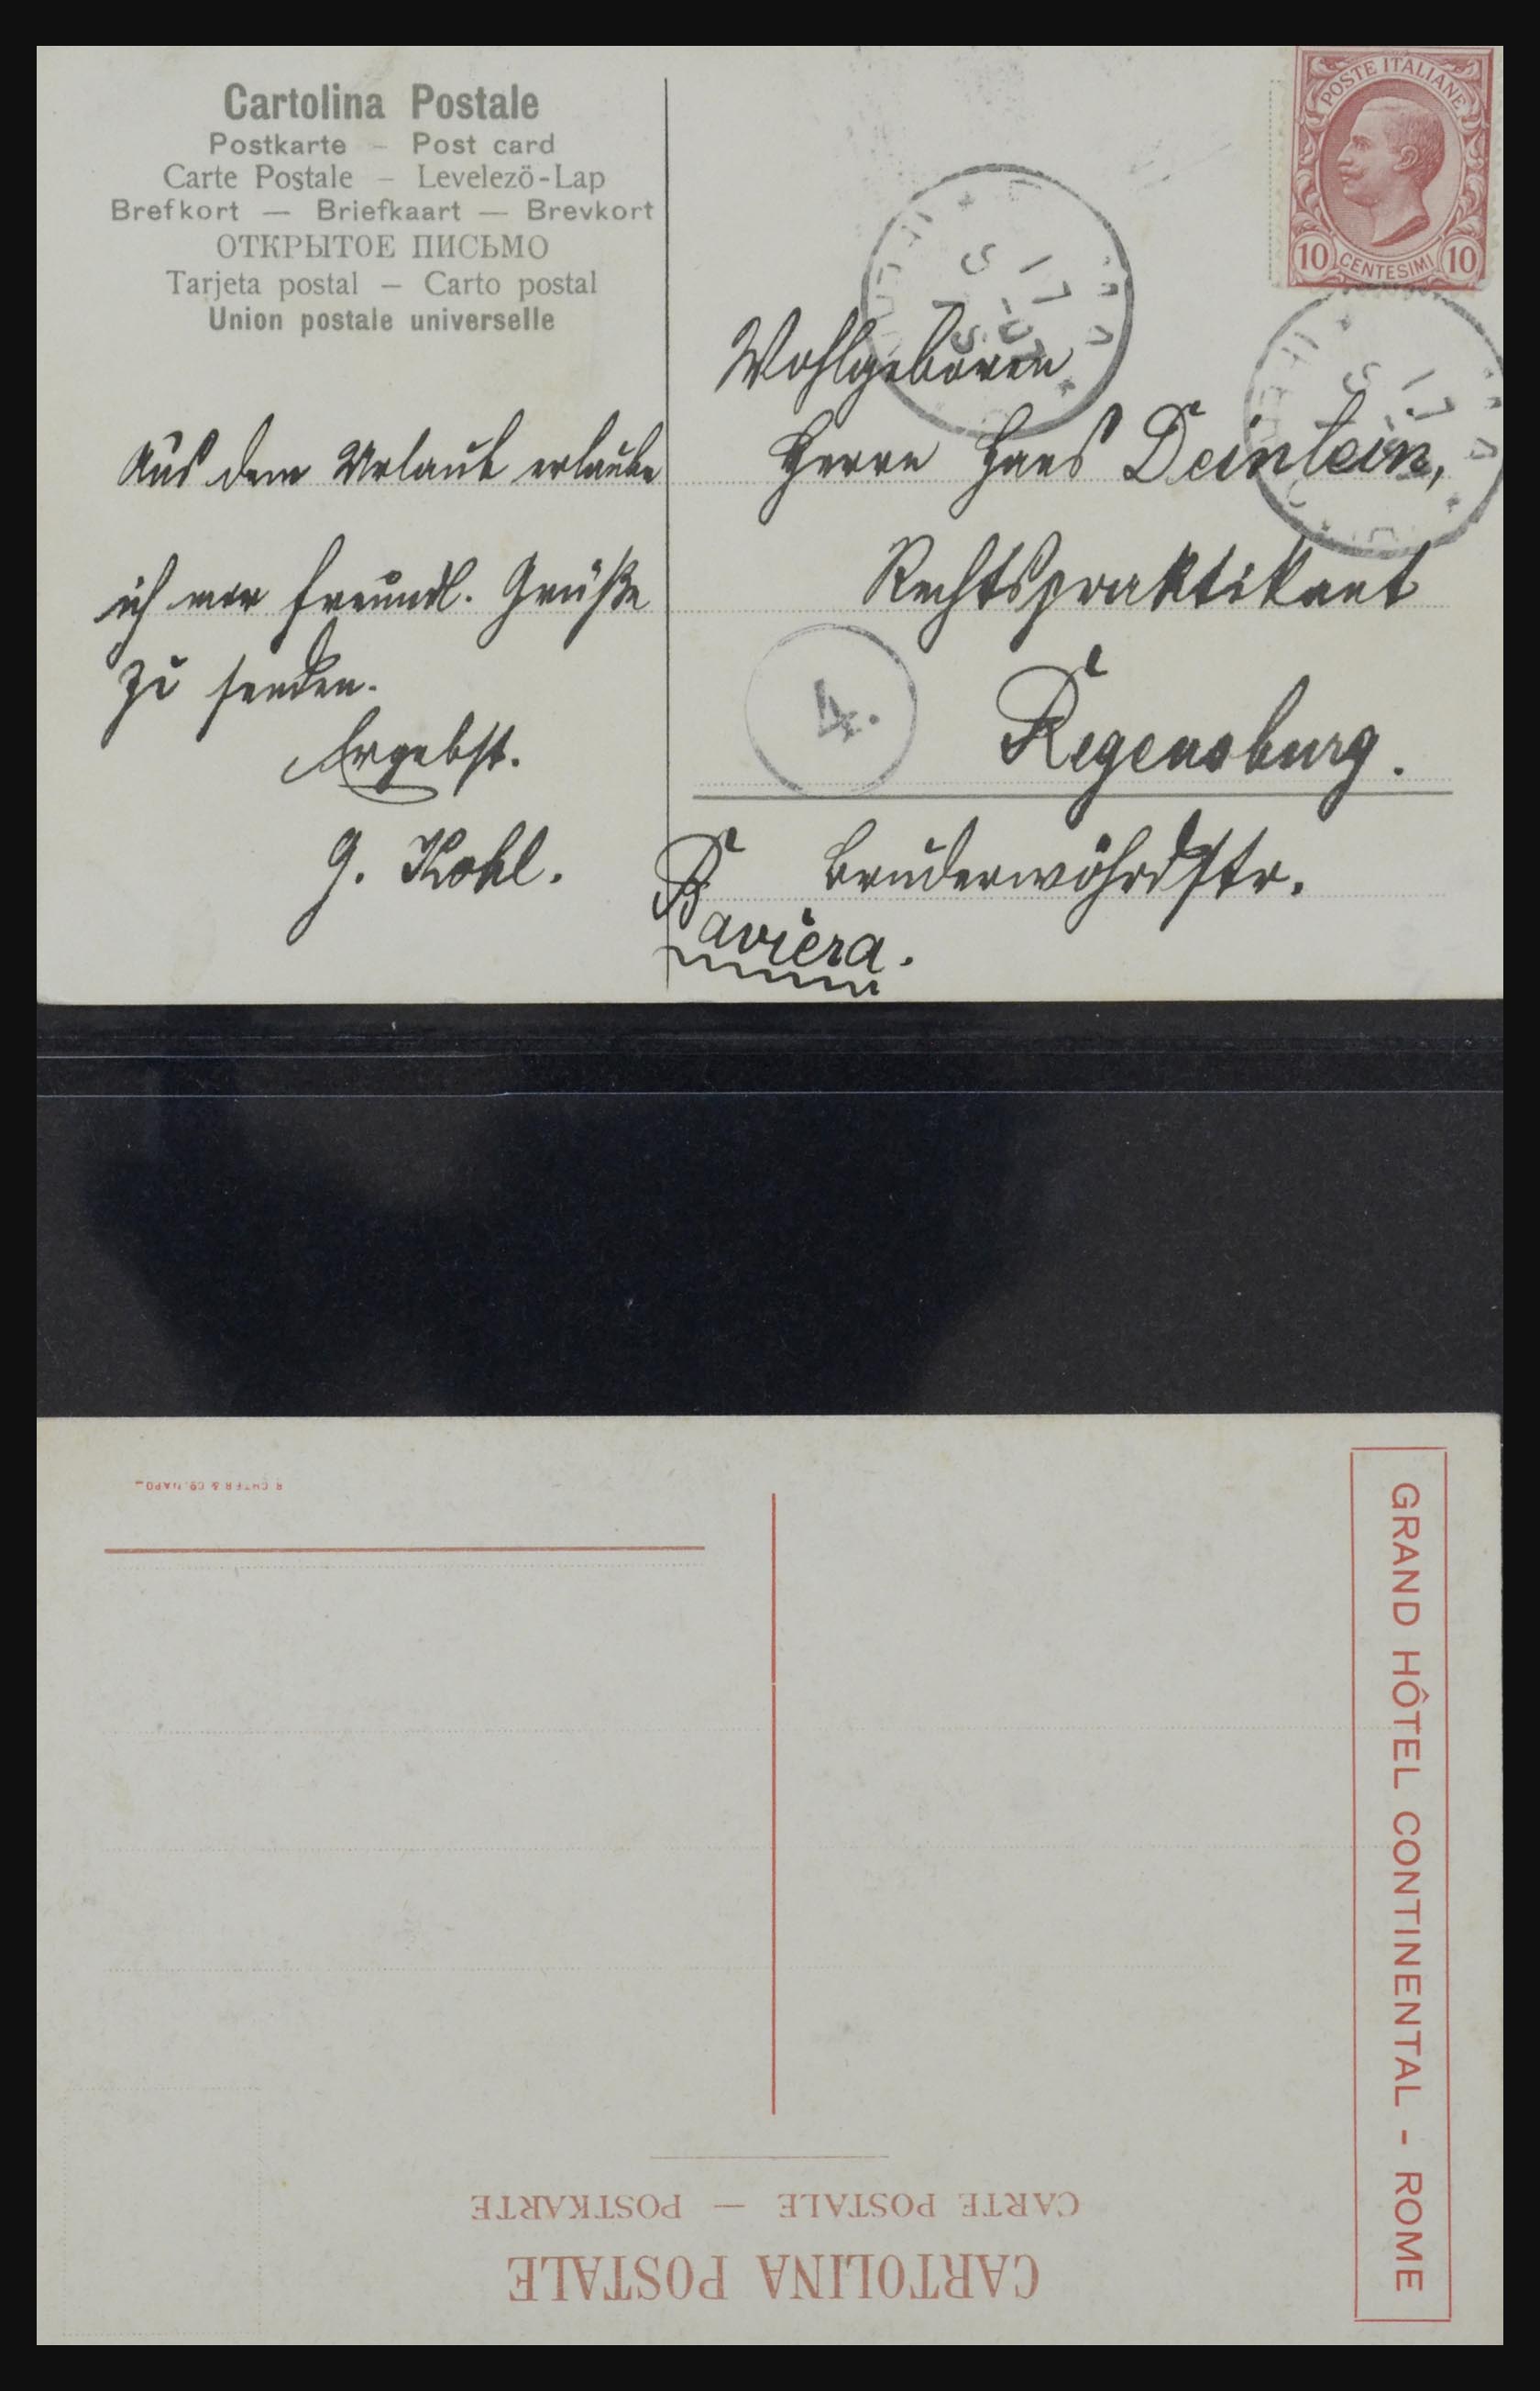 Cartolina Postale
Postkarte – Post card
Carte Postale – Levelezö-Lap
Brefkort — Briefkaart — Brevkort
ОТКРЫТОЕ ПИСЬМО
Tarjeta postal – Carto postal
Union postale universelle
Aus dem Urlaub erlaube
ich mir freundl. Grüße
zu senden.
Ergebst.
G. Kohl.
POSTE ITALIANE
10 CENTESIMI 10
Wohlgeboren
Herrn Hans Deinlein,
Rechtspraktikant
4.
Regensburg.
Bruderwöhrdstr.
Baviera.
GRAND HÔTEL CONTINENTAL - ROME
CARTOLINA POSTALE
CARTE POSTALE — POSTKARTE